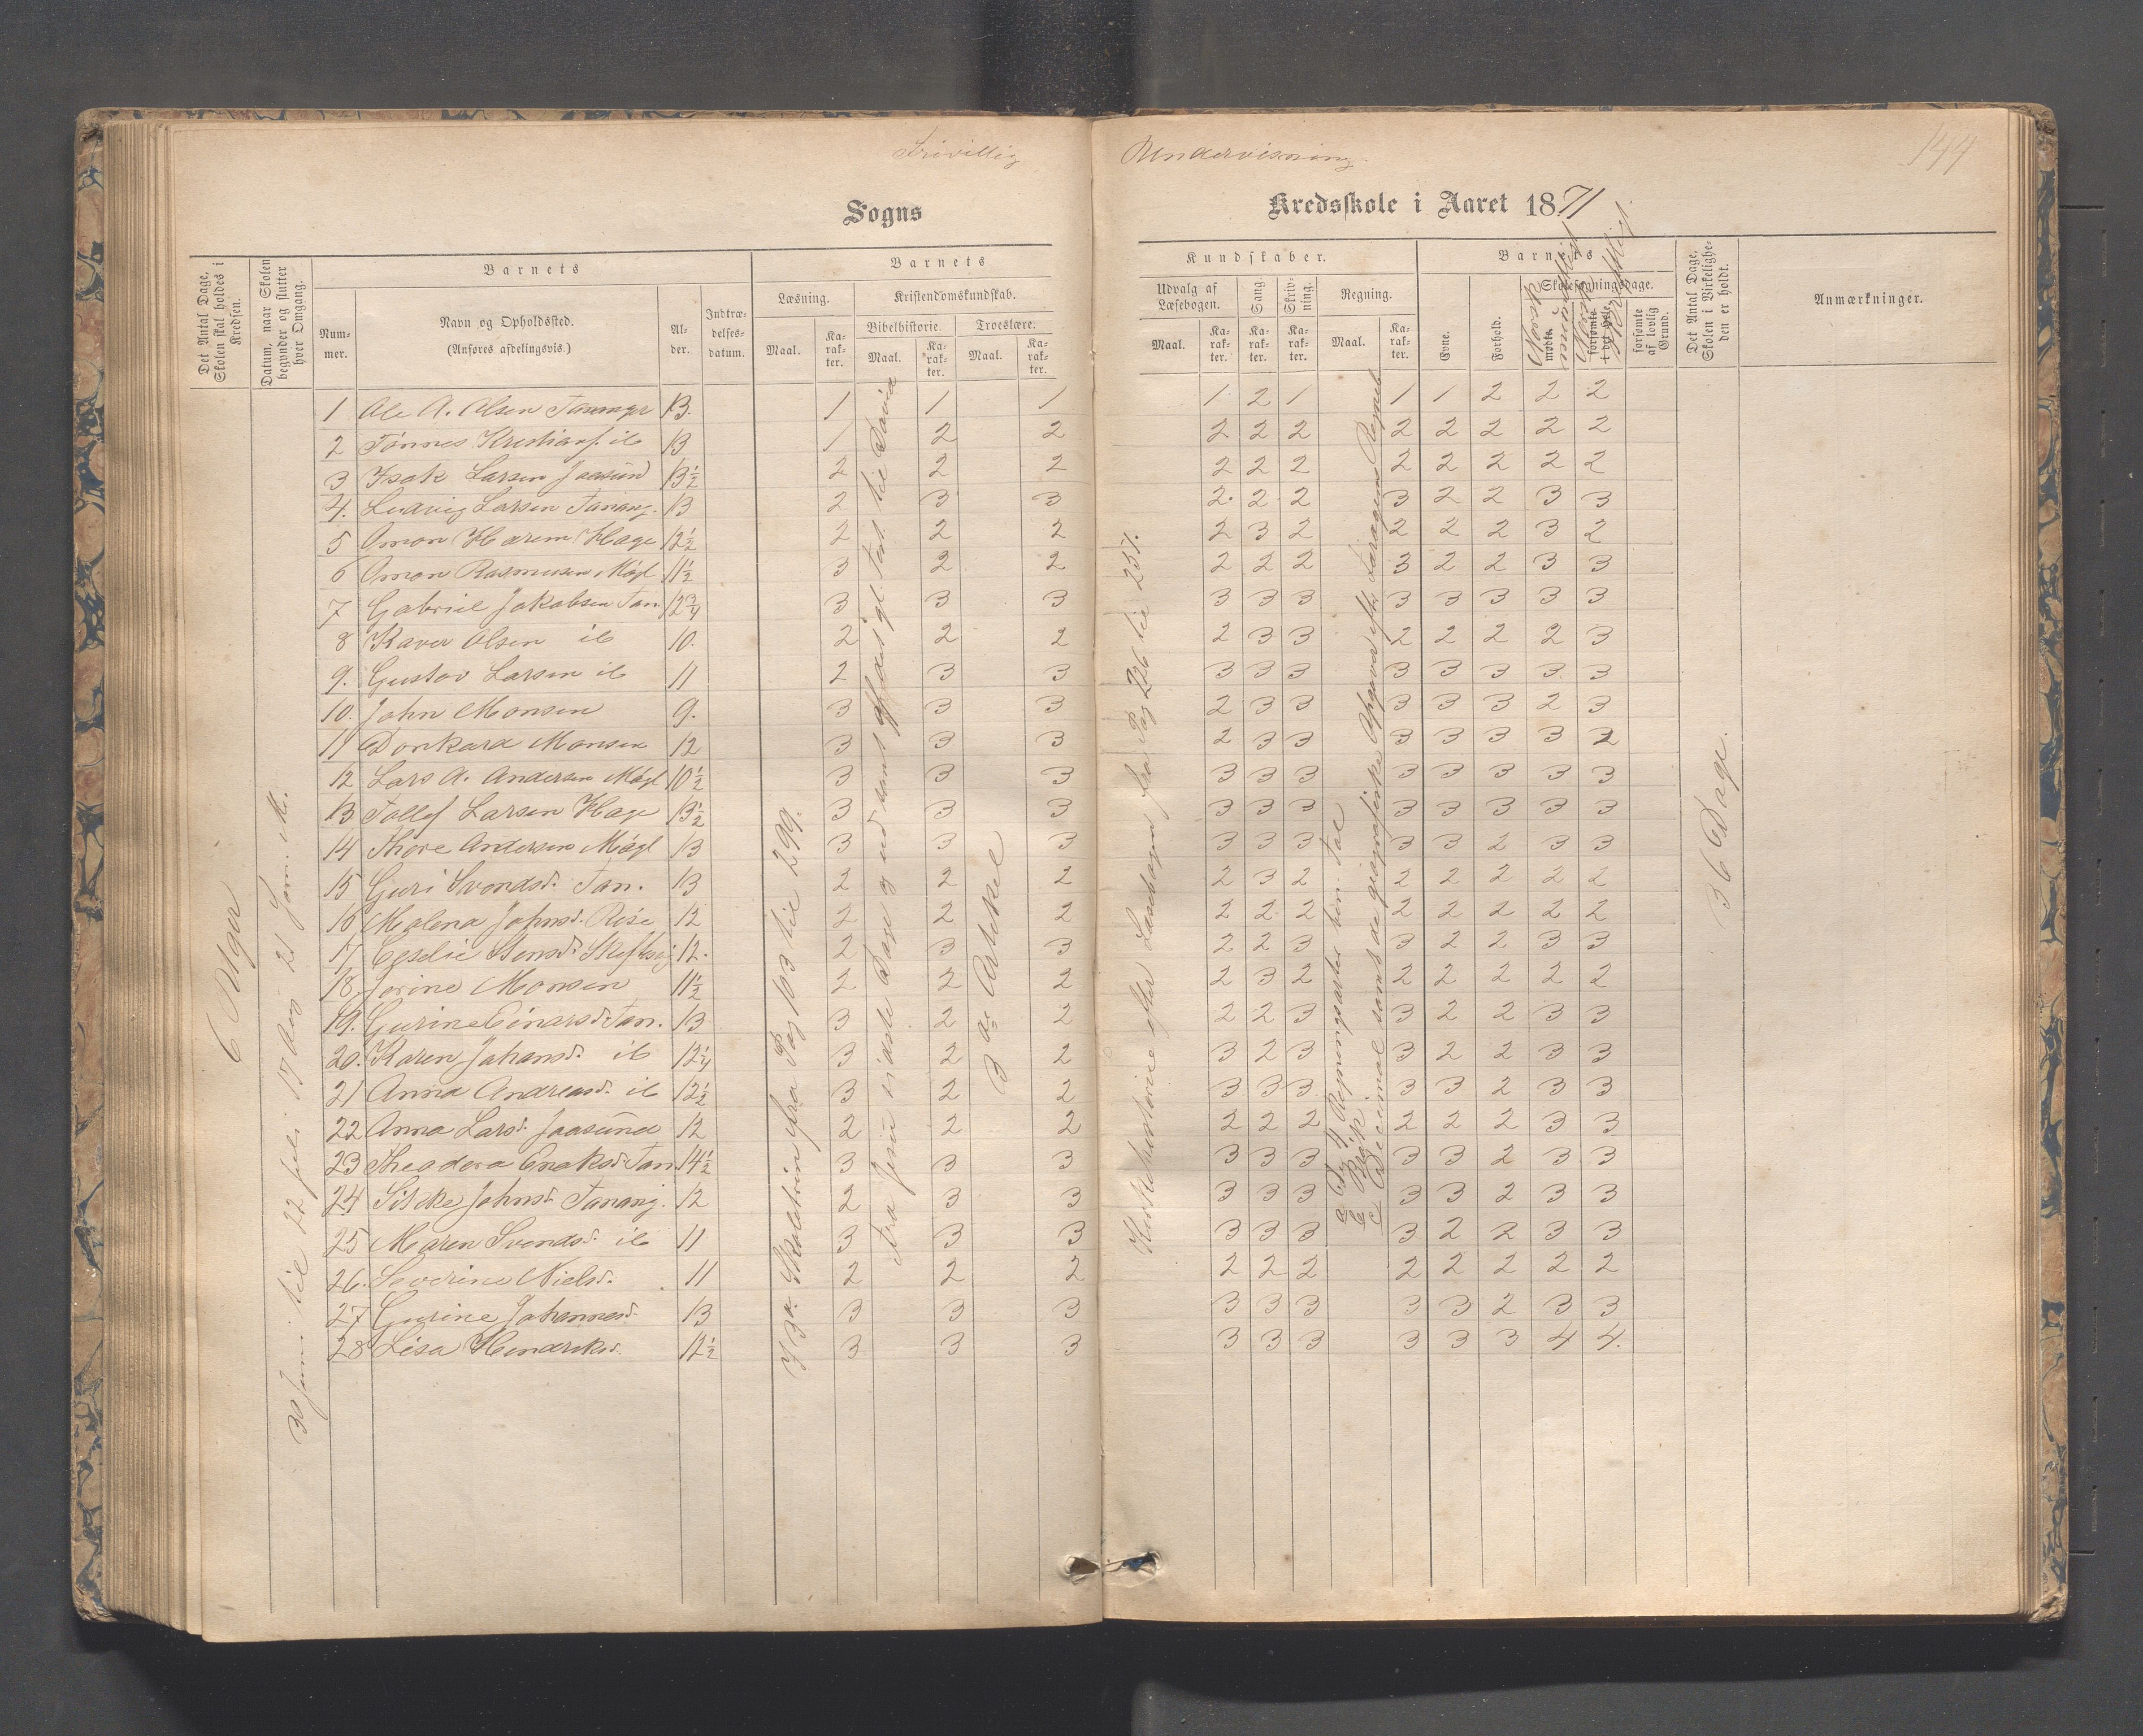 Frivillig Undervisning.
144
Sogns Kredsskole i Aaret 1871
Det Antal Dage, Skolen skal holdes i Kredsen.
Datum, naar Skolen begynder og slutter hver Omgang.
Barnets
Nummer.
Navn og Opholdssted.
(Anføres afdelingsvis.)
Alder.
Indtrædelsesdatum.
Barnets
Læsning.
Maal.
Karakter.
Kristendomskundskab.
Bibelhistorie.
Maal.
Karakter.
Troeslære.
Maal.
Karakter.
Kundskaber.
Udvalg af Læsebogen.
Maal.
Karakter.
Sang.
Karakter.
Skrivning.
Karakter.
Regning.
Maal.
Karakter.
Barnets
Evne.
Forhold.
Skolesøgningsdage.
mødte.
Norsk mundtligt
forsømte i det Hele.
Norsk skriftligt
forsømte af lovlig Grund.
Det Antal Dage, Skolen i Virkeligheden er holdt.
Anmærkninger.
6 Uger
30 Juni til 22 Juli 17 Aug
3die Artikel
Kirkehistorie efter Læsebogen fra Pag 226 til 257.
36 Dage.
1 Ole A. Olsen Tananger 13. 1 1 1 1 2 1 1 1 2 2 2
2 Tönnes Kristians. ib 13 1 2 2 2 2 2 2 2 2 2 2
3 Isak Larsen Jaasund 13½ 2 2 2 2 2 2 2 2 2 2 2
4. Ludvig Larsen Tanang. 13 2 3 3 2. 2 2 3 2 2 3 3
5 Omon Karem Hage 12½ 2 2 2 2 3 2 2 2 2 3 2
6 Omon Rasmussen Mögl 11½ 3 2 2 2 2 2 3 2 2 3 3
7 Gabriel Jakobsen Tan. 12¾ 3 3 3 3 3 3 3 3 3 3 3
8 Kaver Olsen ib 10. 2 2 2 2 3 3 2 2 2 2 3
9. Gustav Larsen ib 11 2 3 3 3 3 3 3 3 3 3 3
10. John Monsen 9. 3 3 3 2 3 3 3 3 3 2 3
11 Donkard Monsen 12 3 3 3 2 3 3 3 3 3 3 2
12 Lars A. Andersen Mögl 10½ 3 3 3 3 3 3 3 3 3 3 3
13 Tollef Larsen Hage 13½ 3 3 3 3 3 3 3 3 3 3 3
14 Thore Andersen Mögl 13 3 3 3 3 3 3 3 3 2 3 3
15 Guri Svendsd. Tan. 13 2 2 2 2 3 2 2 2 2 2 2
16 Malena Johnsd. Risa 12 2 2 2 2 2 2 2 2 2 2 2
17 12. 2 3 3 2 2 3 3 2 2 3 3
18. Jorine Monsen 11½ 2 2 2 2 3 2 2 2 2 2 2
19. Gurine Einarsd. Tan. 13 3 2 2 2 2 3 3 2 2 3 3
20. Karen Johansd. ib 12¼ 3 2 2 3 2 3 3 2 2 3 3
21 Anna Andreasd. ib 12½ 3 2 2 3 3 3 3 3 2 3 3
22 Anna Larsd. Jaasund 12 2 2 2 2 2 2 2 2 2 3 3
23 Theodora Enoksd. Tan 14½ 3 3 3 3 3 3 3 3 2 3 3
24 Silcke Johnsd. Tanang. 12 2 3 3 3 3 3 3 3 2 3 3
25 Maren Svendsd. ib 11 3 3 3 3 3 3 3 2 2 3 3
26. Severine Nielsd. 11 2 2 2 2 2 2 2 2 2 2 2
27 Gurine Johannesd. 13 3 3 3 3 3 3 3 3 2 3 3
28 Lisa Hendriksd. 12½ 3 3 3 3 3 3 3 3 3 4 4.